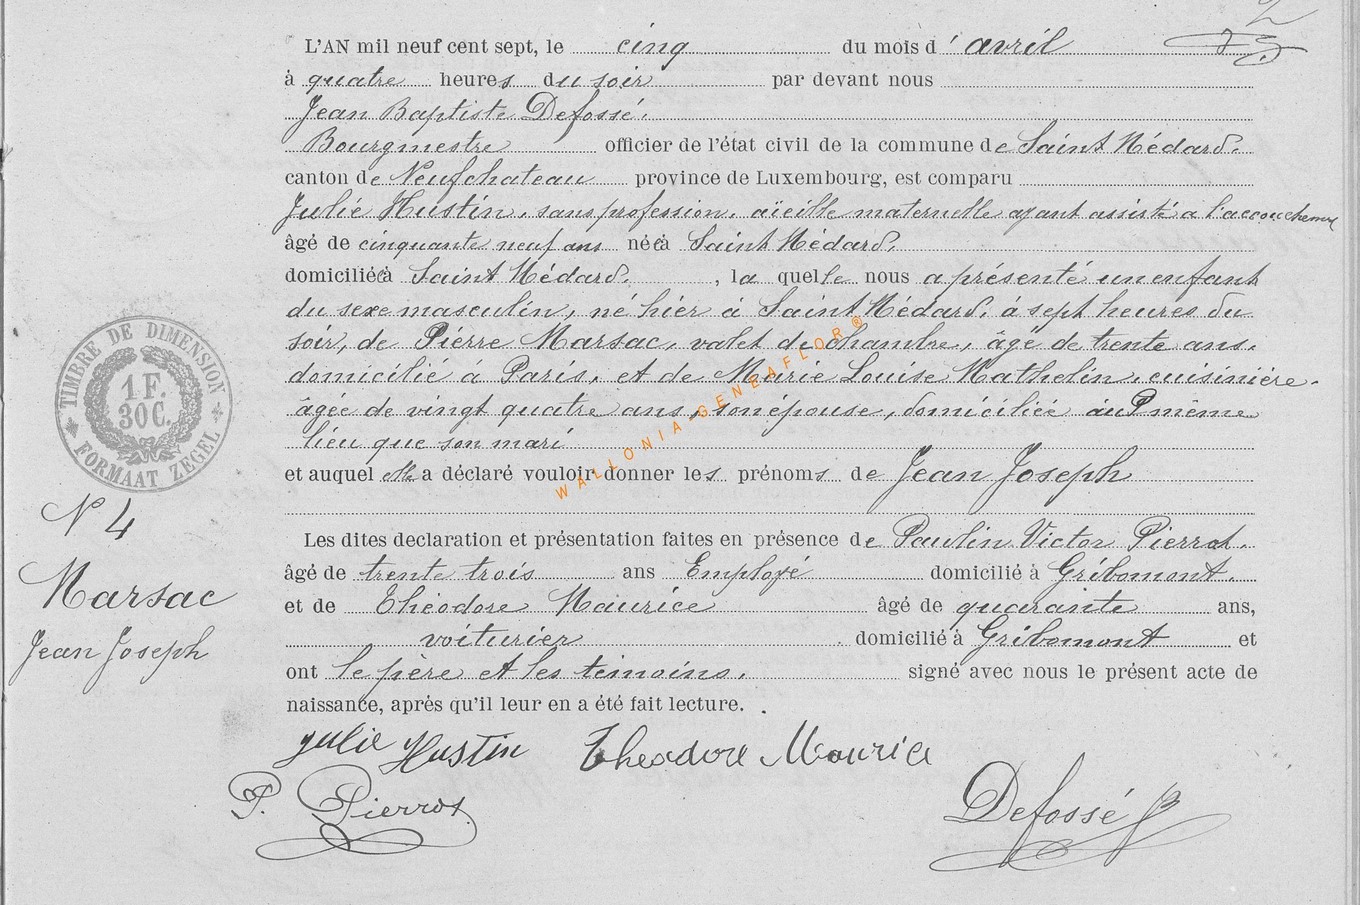 2
L'AN mil neuf cent sept, le cinq du mois d'avril
à quatre heures du soir par devant nous
Jean Baptiste Defossé.
Bourgmestre officier de l'état civil de la commune de Saint Médard.
canton de Neufchateau province de Luxembourg, est comparu
Julie Hustin, sans profession, aïeille maternelle ayant assisté a l'accouchement
âgé de cinquante neuf ans née à Saint Médard.
domiciliée à Saint Médard. , la quelle nous a présenté un enfant
du sexe masculin, né hier à Saint Médard, à sept heures du
soir, de Pierre Marsac, valet de chambre, âgé de trente ans.
domicilié à Paris, et de Marie Louise Mathelin, cuisinière.
âgée de vingt quatre ans, son épouse, domiciliée au même
lieu que son mari
et auquel elle a déclaré vouloir donner les prénoms de Jean Joseph
Les dites declaration et présentation faites en présence de Paulin Victor Pierrot.
âgé de trente trois ans Employé domicilié à Gribomont.
et de Théodore Maurice âgé de quarante ans,
voiturier domicilié à Gribomont et
ont le père et les témoins. signé avec nous le présent acte de
naissance, après qu'il leur en a été fait lecture.
julie Hustin Theodore Maurice
P. Pierrot
Defossé
TIMBRE DE DIMENSION
1 F.
30 C.
FORMAAT ZEGEL
N 4
Marsac
Jean Joseph
WALLONIA-GENEAFLOR®